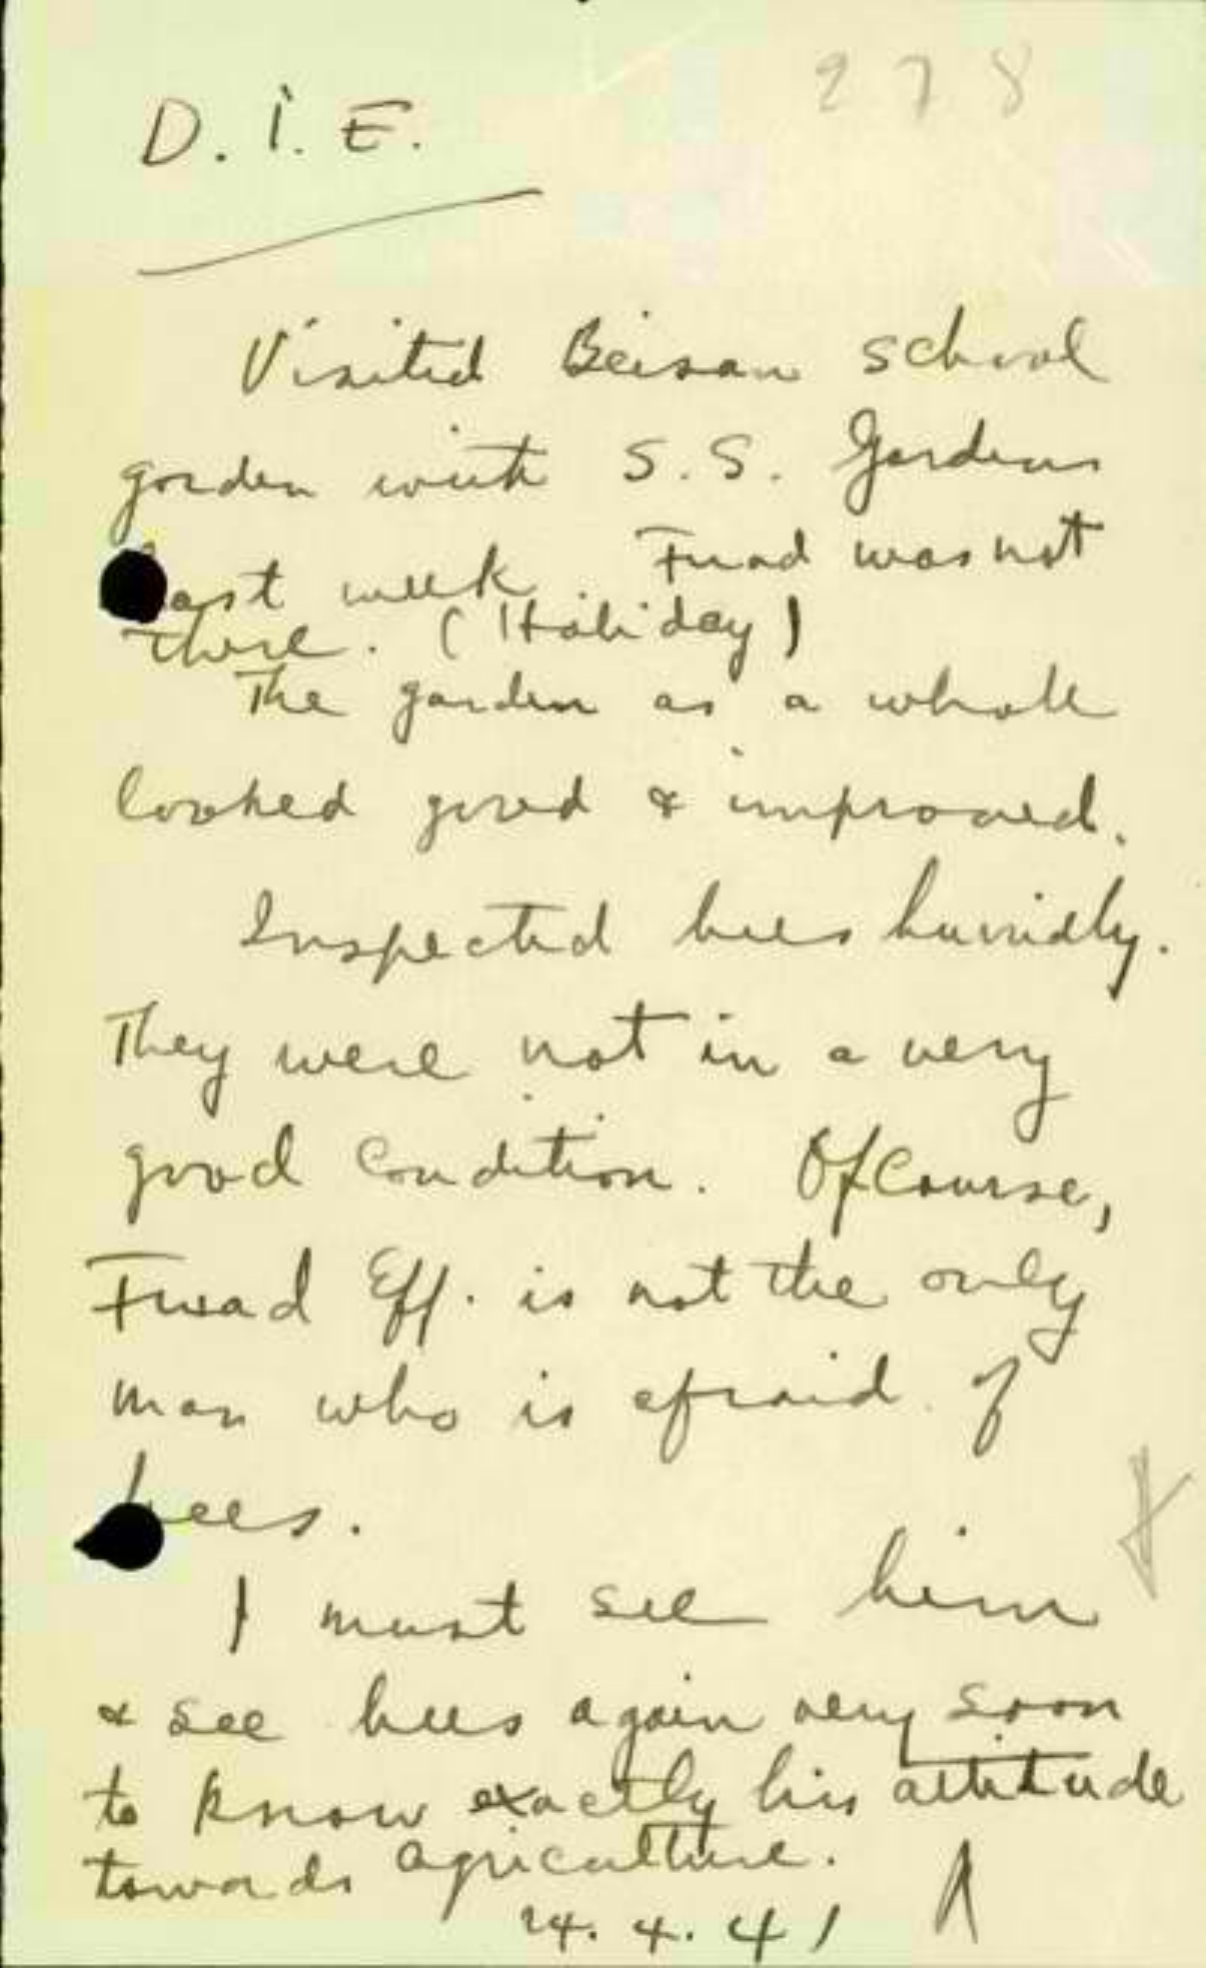 278
D. I. E.
Visited Beisan school
garden with S.S. Gardens
last week. Fuad was not
there. (Holiday)
The garden as a whole
looked good & improved.
Inspected bees
They were not in a very
good condition. Of Course,
Fuad Eff. is not the only
man who is afraid of
bees.
I must see him
& see bees again very soon
to know exactly his attitude
towards agriculture.
24. 4. 41